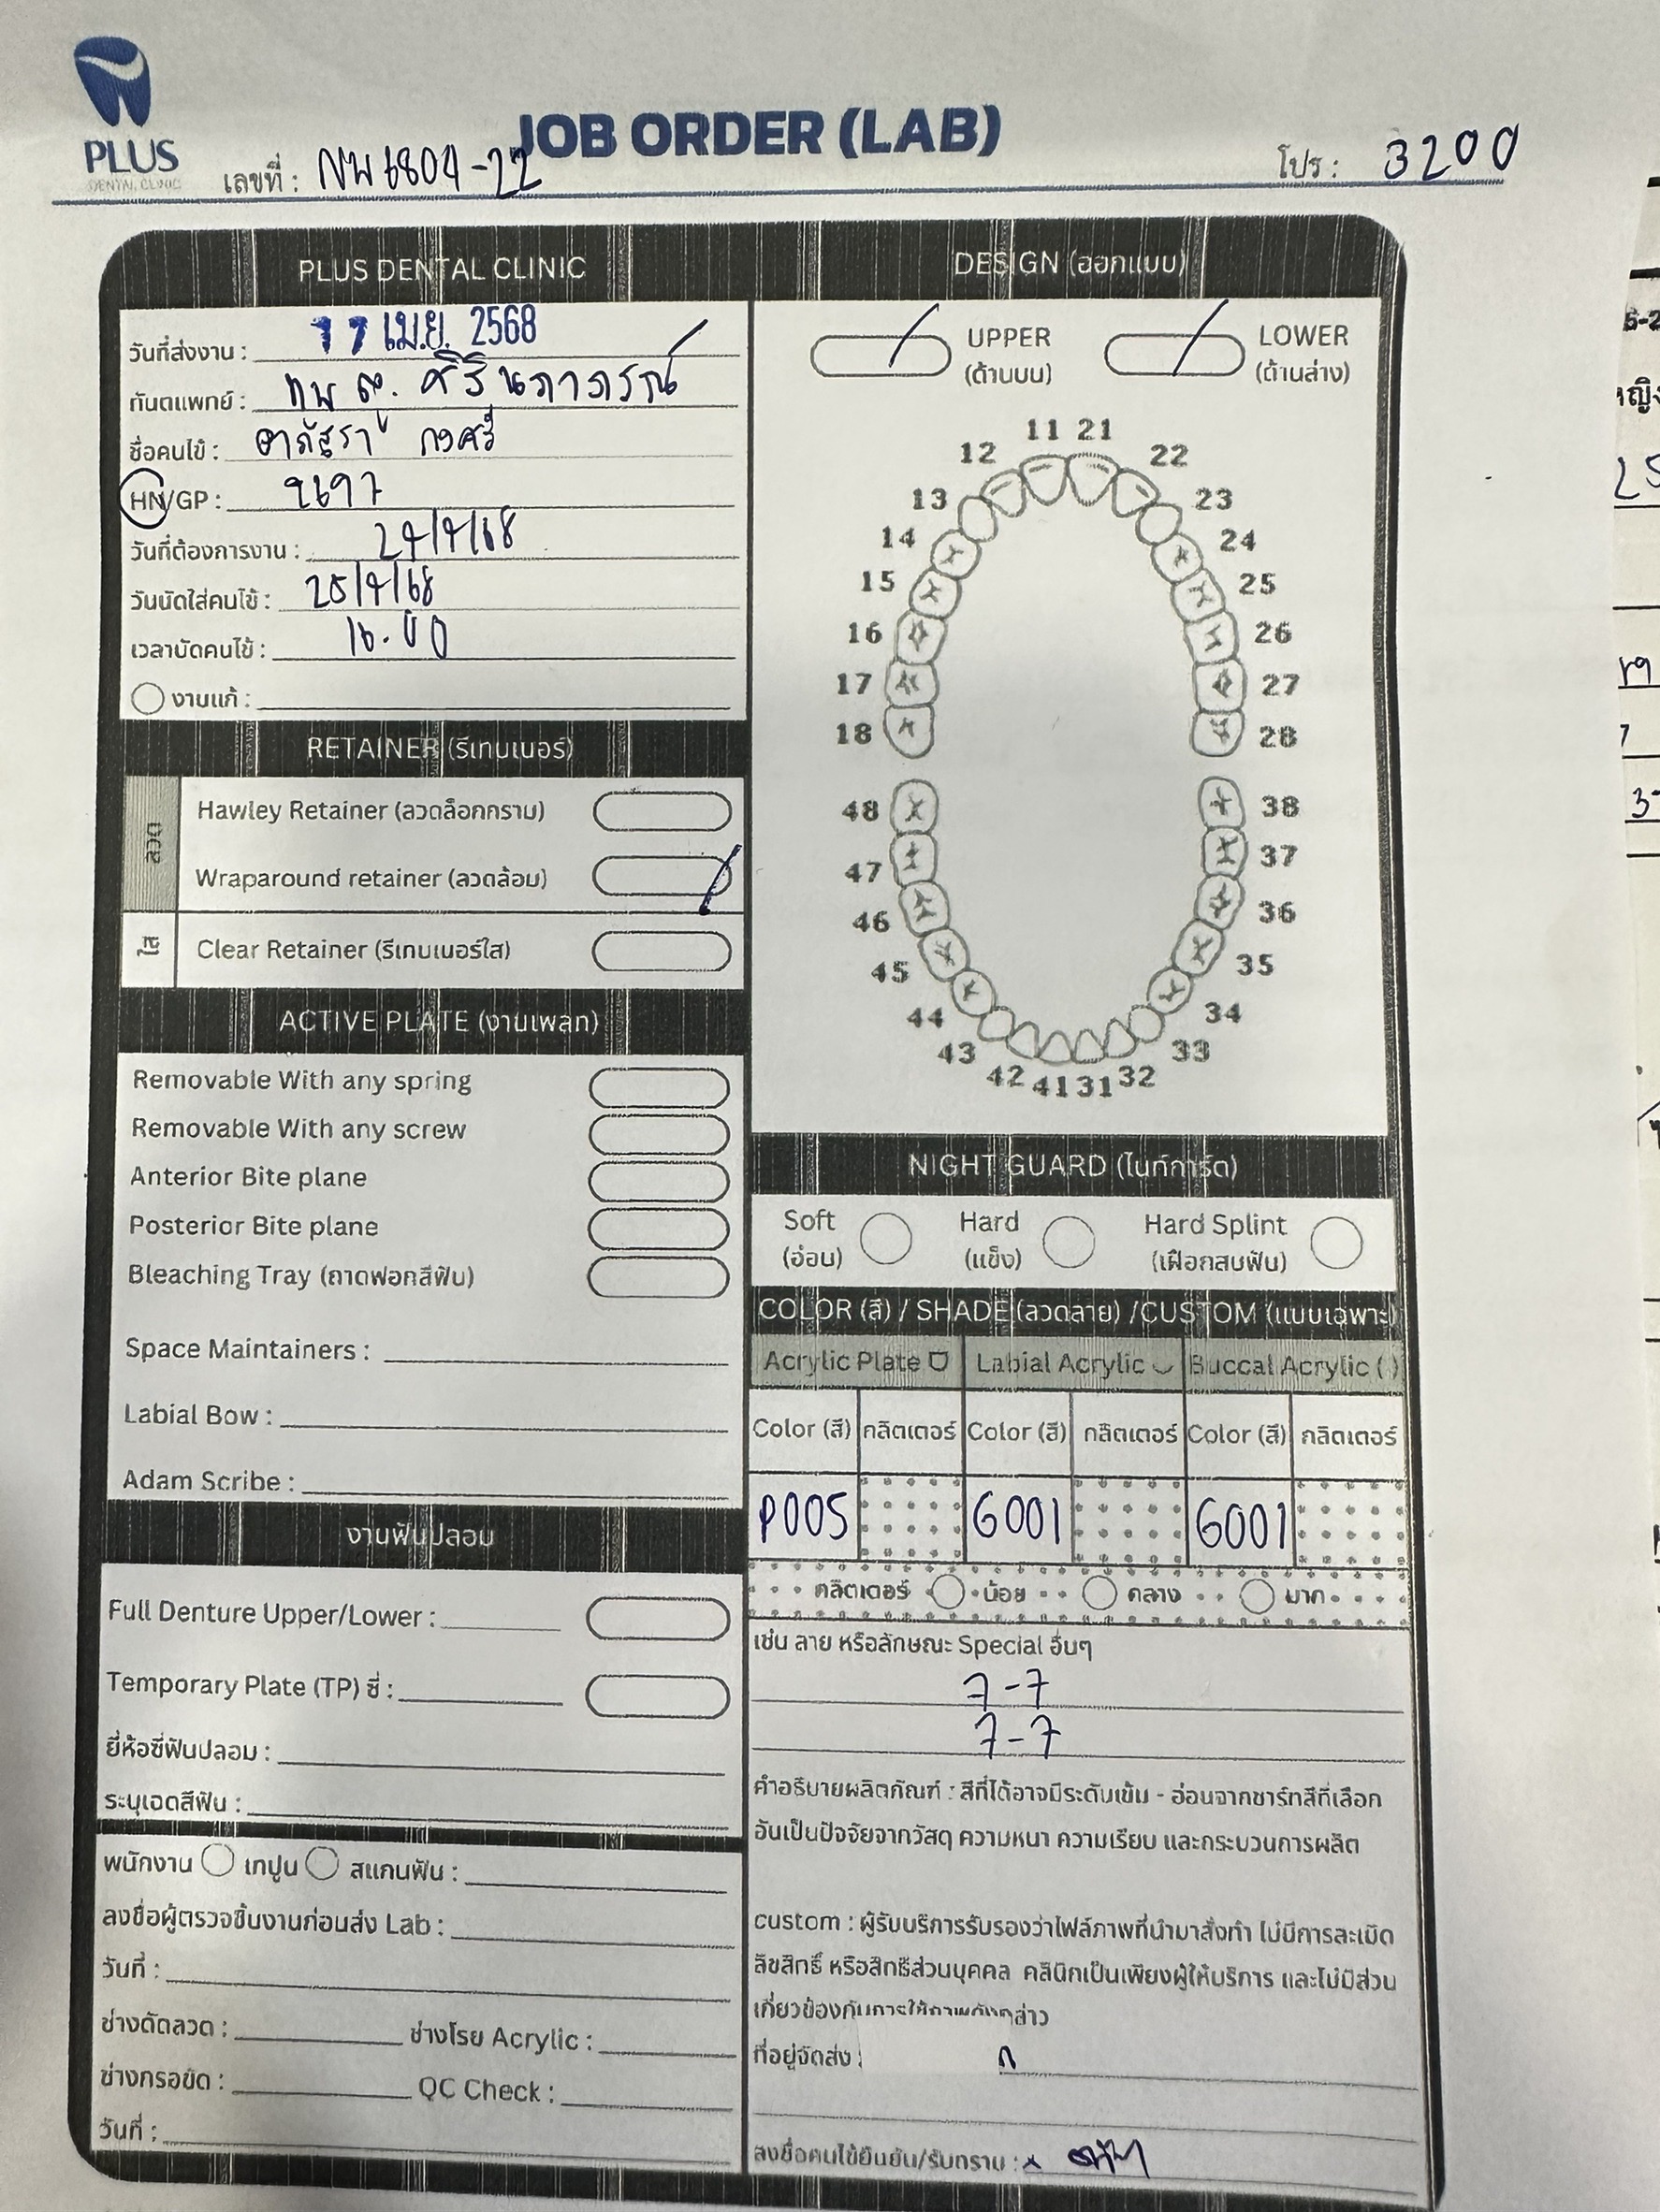 PLUS
DENTAL CLINIC
JOB ORDER (LAB)
เลขที่ : NW6804-22
โปร : 3200
PLUS DENTAL CLINIC
วันที่ส่งงาน : 17 เม.ย. 2568
ทันตแพทย์ : ทพญ. ศิรินภาภรณ์
ชื่อคนไข้ :
HN/GP : 2697
วันที่ต้องการงาน : 24/4/68
วันนัดใส่คนไข้ : 25/4/68
เวลานัดคนไข้ : 16.00
งานแก้ :
RETAINER (รีเทนเนอร์)
ลวด
Hawley Retainer (ลวดล็อกกราม)
Wraparound retainer (ลวดล้อม)
ใส
Clear Retainer (รีเทนเนอร์ใส)
ACTIVE PLATE (งานเพลท)
Removable With any spring
Removable With any screw
Anterior Bite plane
Posterior Bite plane
Bleaching Tray (ถาดฟอกสีฟัน)
Space Maintainers :
Labial Bow :
Adam Scribe :
งานฟันปลอม
Full Denture Upper/Lower :
Temporary Plate (TP) ซี่ :
ยี่ห้อซี่ฟันปลอม :
ระบุเฉดสีฟัน :
พนักงาน เทปูน สแกนฟัน :
ลงชื่อผู้ตรวจชิ้นงานก่อนส่ง Lab :
วันที่ :
ช่างดัดลวด : ช่างโรย Acrylic :
ช่างกรอขัด : QC Check :
วันที่ :
DESIGN (ออกแบบ)
UPPER
(ด้านบน)
LOWER
(ด้านล่าง)
11 21
12 22
13 23
14 24
15 25
16 26
17 27
18 28
48 38
47 37
46 36
45 35
44 34
43 33
42 41 31 32
NIGHT GUARD (ไนท์การ์ด)
Soft
(อ่อน)
Hard
(แข็ง)
Hard Splint
(เฝือกสบฟัน)
COLOR (สี) / SHADE (ลวดลาย) /CUSTOM (แบบเฉพาะ)
Acrylic Plate Labial Acrylic Buccal Acrylic ( )
Color (สี) กลิตเตอร์ Color (สี) กลิตเตอร์ Color (สี) กลิตเตอร์
P005 G001 G001
กลิตเตอร์ น้อย กลาง มาก
เช่น ลาย หรือลักษณะ Special อื่นๆ
7-7
7-7
คำอธิบายผลิตภัณฑ์ : สีที่ได้อาจมีระดับเข้ม - อ่อนจากชาร์ทสีที่เลือก
อันเป็นปัจจัยจากวัสดุ ความหนา ความเรียบ และกระบวนการผลิต
custom : ผู้รับบริการรับรองว่าไฟล์ภาพที่นำมาสั่งทำ ไม่มีการละเมิด
ลิขสิทธิ์ หรือสิทธิส่วนบุคคล คลินิกเป็นเพียงผู้ให้บริการ และไม่มีส่วน
เกี่ยวข้องกับการใช้ภาพดังกล่าว
ที่อยู่จัดส่ง :
ลงชื่อคนไข้ยืนยัน/รับทราบ : x